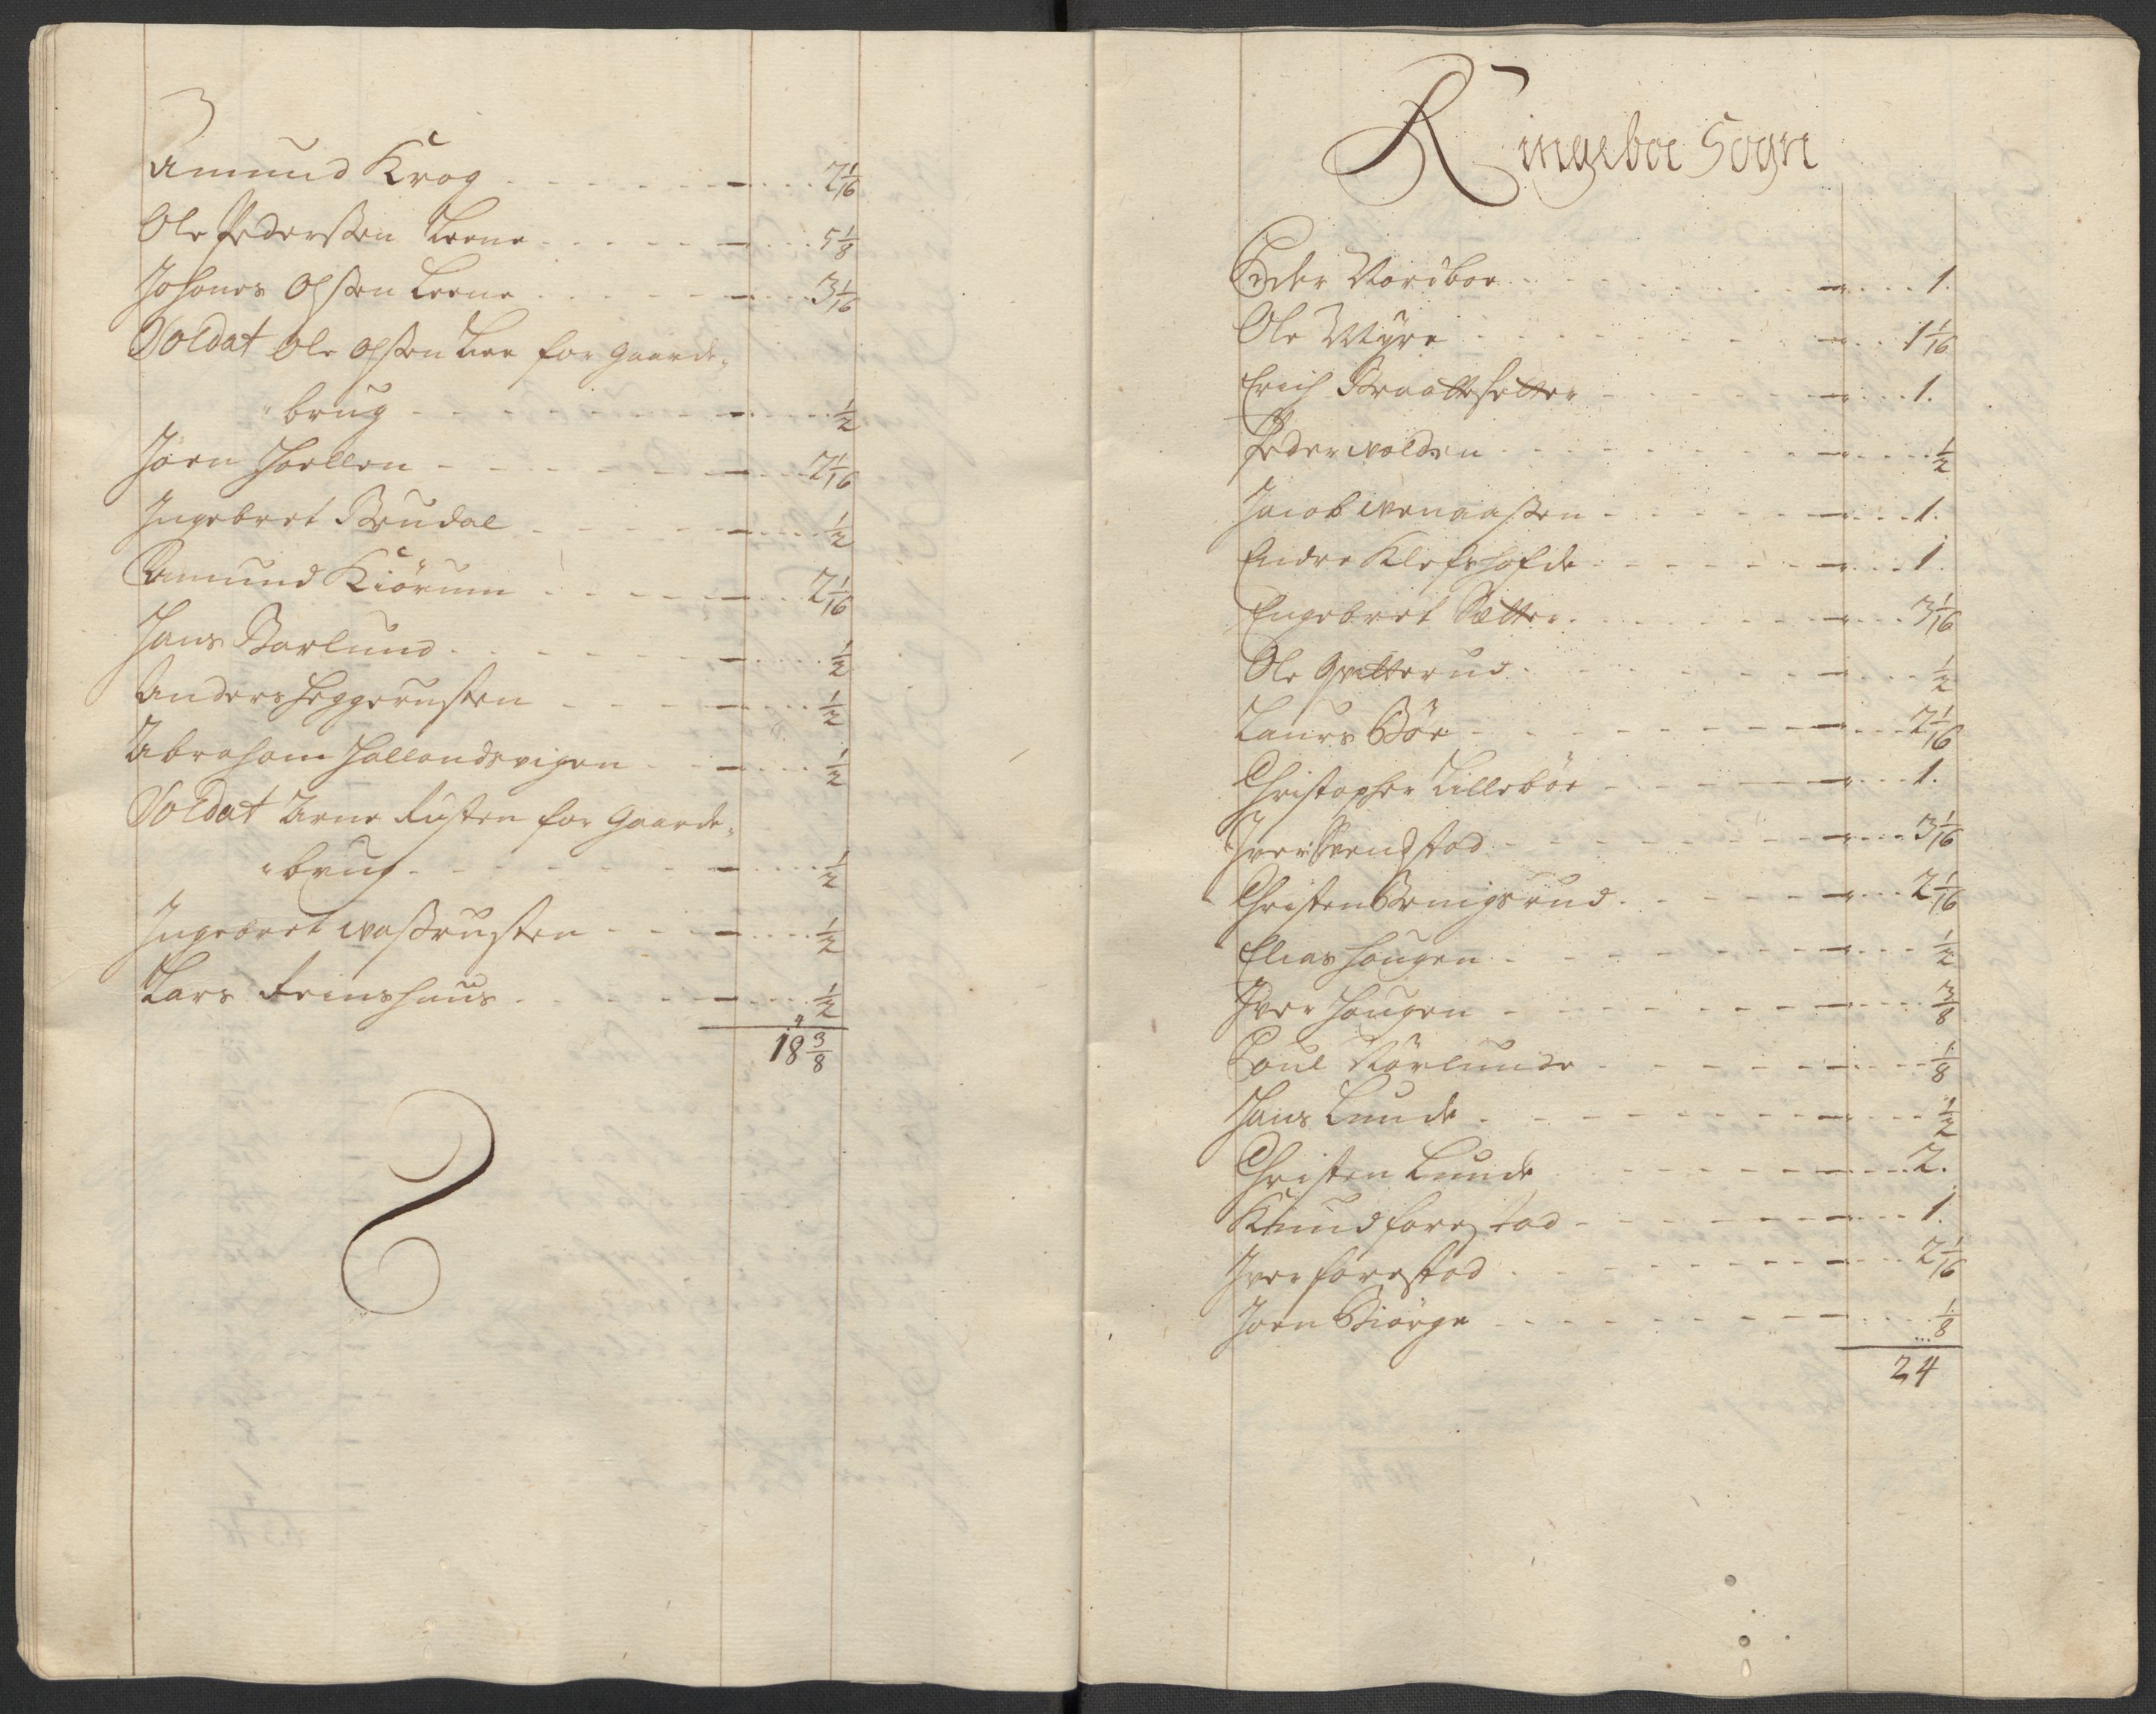 Amund Krog - - - 2 1/16
Ole Pederssen Leene - - - 5 1/8
Johanes Olssen Leene - - - 3 1/16
Soldat Ole Olssen Lee for gaarde=
=brug - - - 1/2
Joen Joellen - - - 2 1/16
Ingebret Brudal - - - 1/2
Amund Kiörum - - - 2 1/16
Hans Barlund - - - 1/2
Anders Heggerusten - - - 1/2
Abraham Hallandsvigen - - - 1/2
Soldat Arne Rusten for gaarde=
=brug - - - 1/2
Ingebret Wassrusten - - - 1/2
Lars Reinshaus - - - 1/2
18 3/8
Ringeboe Sogn
Peder Noriboe - - - 1.
Ole Myre - - - 1 1/16
Erich Braattesetter - - - 1.
Peder wolden - - - 1/2
Jacob wenaassen - - - 1.
Endre Klefshofde - - - 1.
Engebret Sætter - - - 3 1/16
Ole Qvitterud - - - 1/2
Laurs Böe - - - 2 1/16
Christopher Lilleböe - - - 1.
Iver Svendstad - - - 3 1/16
Christen Brnigsrud - - - 2 1/16
Elias Haugen - - - 1/2
Iver Haugen - - - 3/8
Poul Nörlunde - - - 1/8
Hans Lunde - - - 1/2
Christen Lunde - - - 2.
Knud forestad - - - 1.
Iver forestad - - - 2 1/16
Joen Biörge - - - 1/8
24